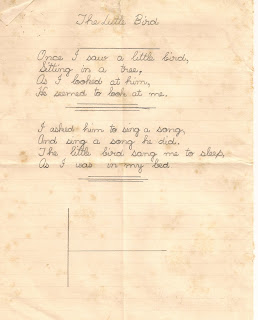 The Little Bird
Once I saw a little bird,
Sitting in a tree,
As I looked at him,
He seemed to look at me.
I asked him to sing a song,
And sing a song he did.
The little bird sang me to sleep,
As I was in my bed